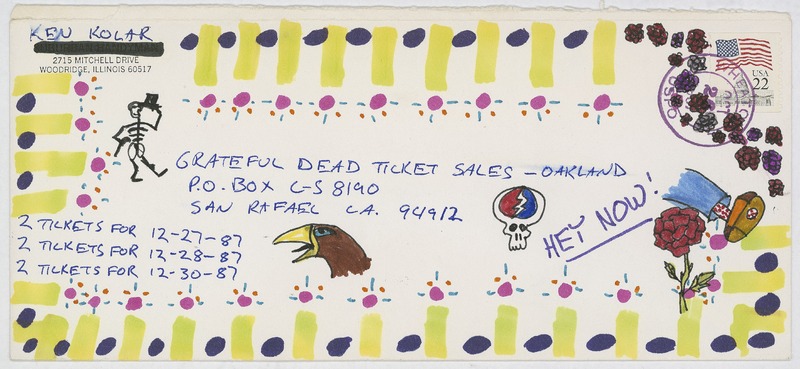 KEN KOLAR
SUBURBAN HANDYMAN
2715 MITCHELL DRIVE
WOODRIDGE, ILLINOIS 60517
USA
22
USPO
GRATEFUL DEAD TICKET SALES - OAKLAND
P.O. BOX C-S 8190
SAN RAFAEL CA. 94912
HEY NOW!
2 TICKETS FOR 12-27-87
2 TICKETS FOR 12-28-87
2 TICKETS FOR 12-30-87